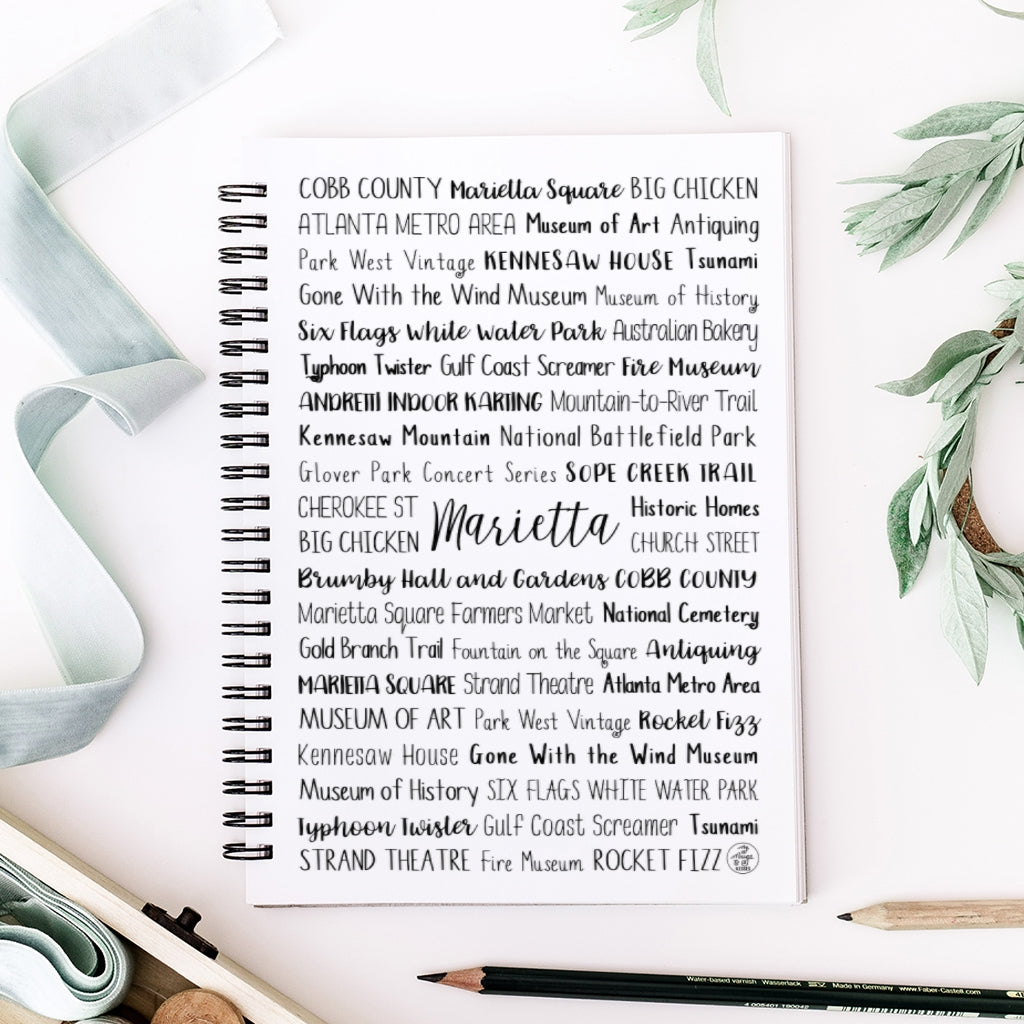 COBB COUNTY Marietta Square BIG CHICKEN
ATLANTA METRO AREA Museum of Art Antiquing
Park West Vintage KENNESAW HOUSE Tsunami
Gone With the Wind Museum Museum of History
Six Flags White Water Park Australian Bakery
Typhoon Twister Gulf Coast Screamer Fire Museum
ANDRETTI INDOOR KARTING Mountain-to-River Trail
Kennesaw Mountain National Battlefield Park
Glover Park Concert Series SOPE CREEK TRAIL
CHEROKEE ST Historic Homes
Marietta
BIG CHICKEN CHURCH STREET
Brumby Hall and Gardens COBB COUNTY
Marietta Square Farmers Market National Cemetery
Gold Branch Trail Fountain on the Square Antiquing
MARIETTA SQUARE Strand Theatre Atlanta Metro Area
MUSEUM OF ART Park West Vintage Rocket Fizz
Kennesaw House Gone With the Wind Museum
Museum of History SIX FLAGS WHITE WATER PARK
Typhoon Twister Gulf Coast Screamer Tsunami
STRAND THEATRE Fire Museum ROCKET FIZZ
Water-based varnish Wasserlack Made in Germany www.Faber-Castell.com